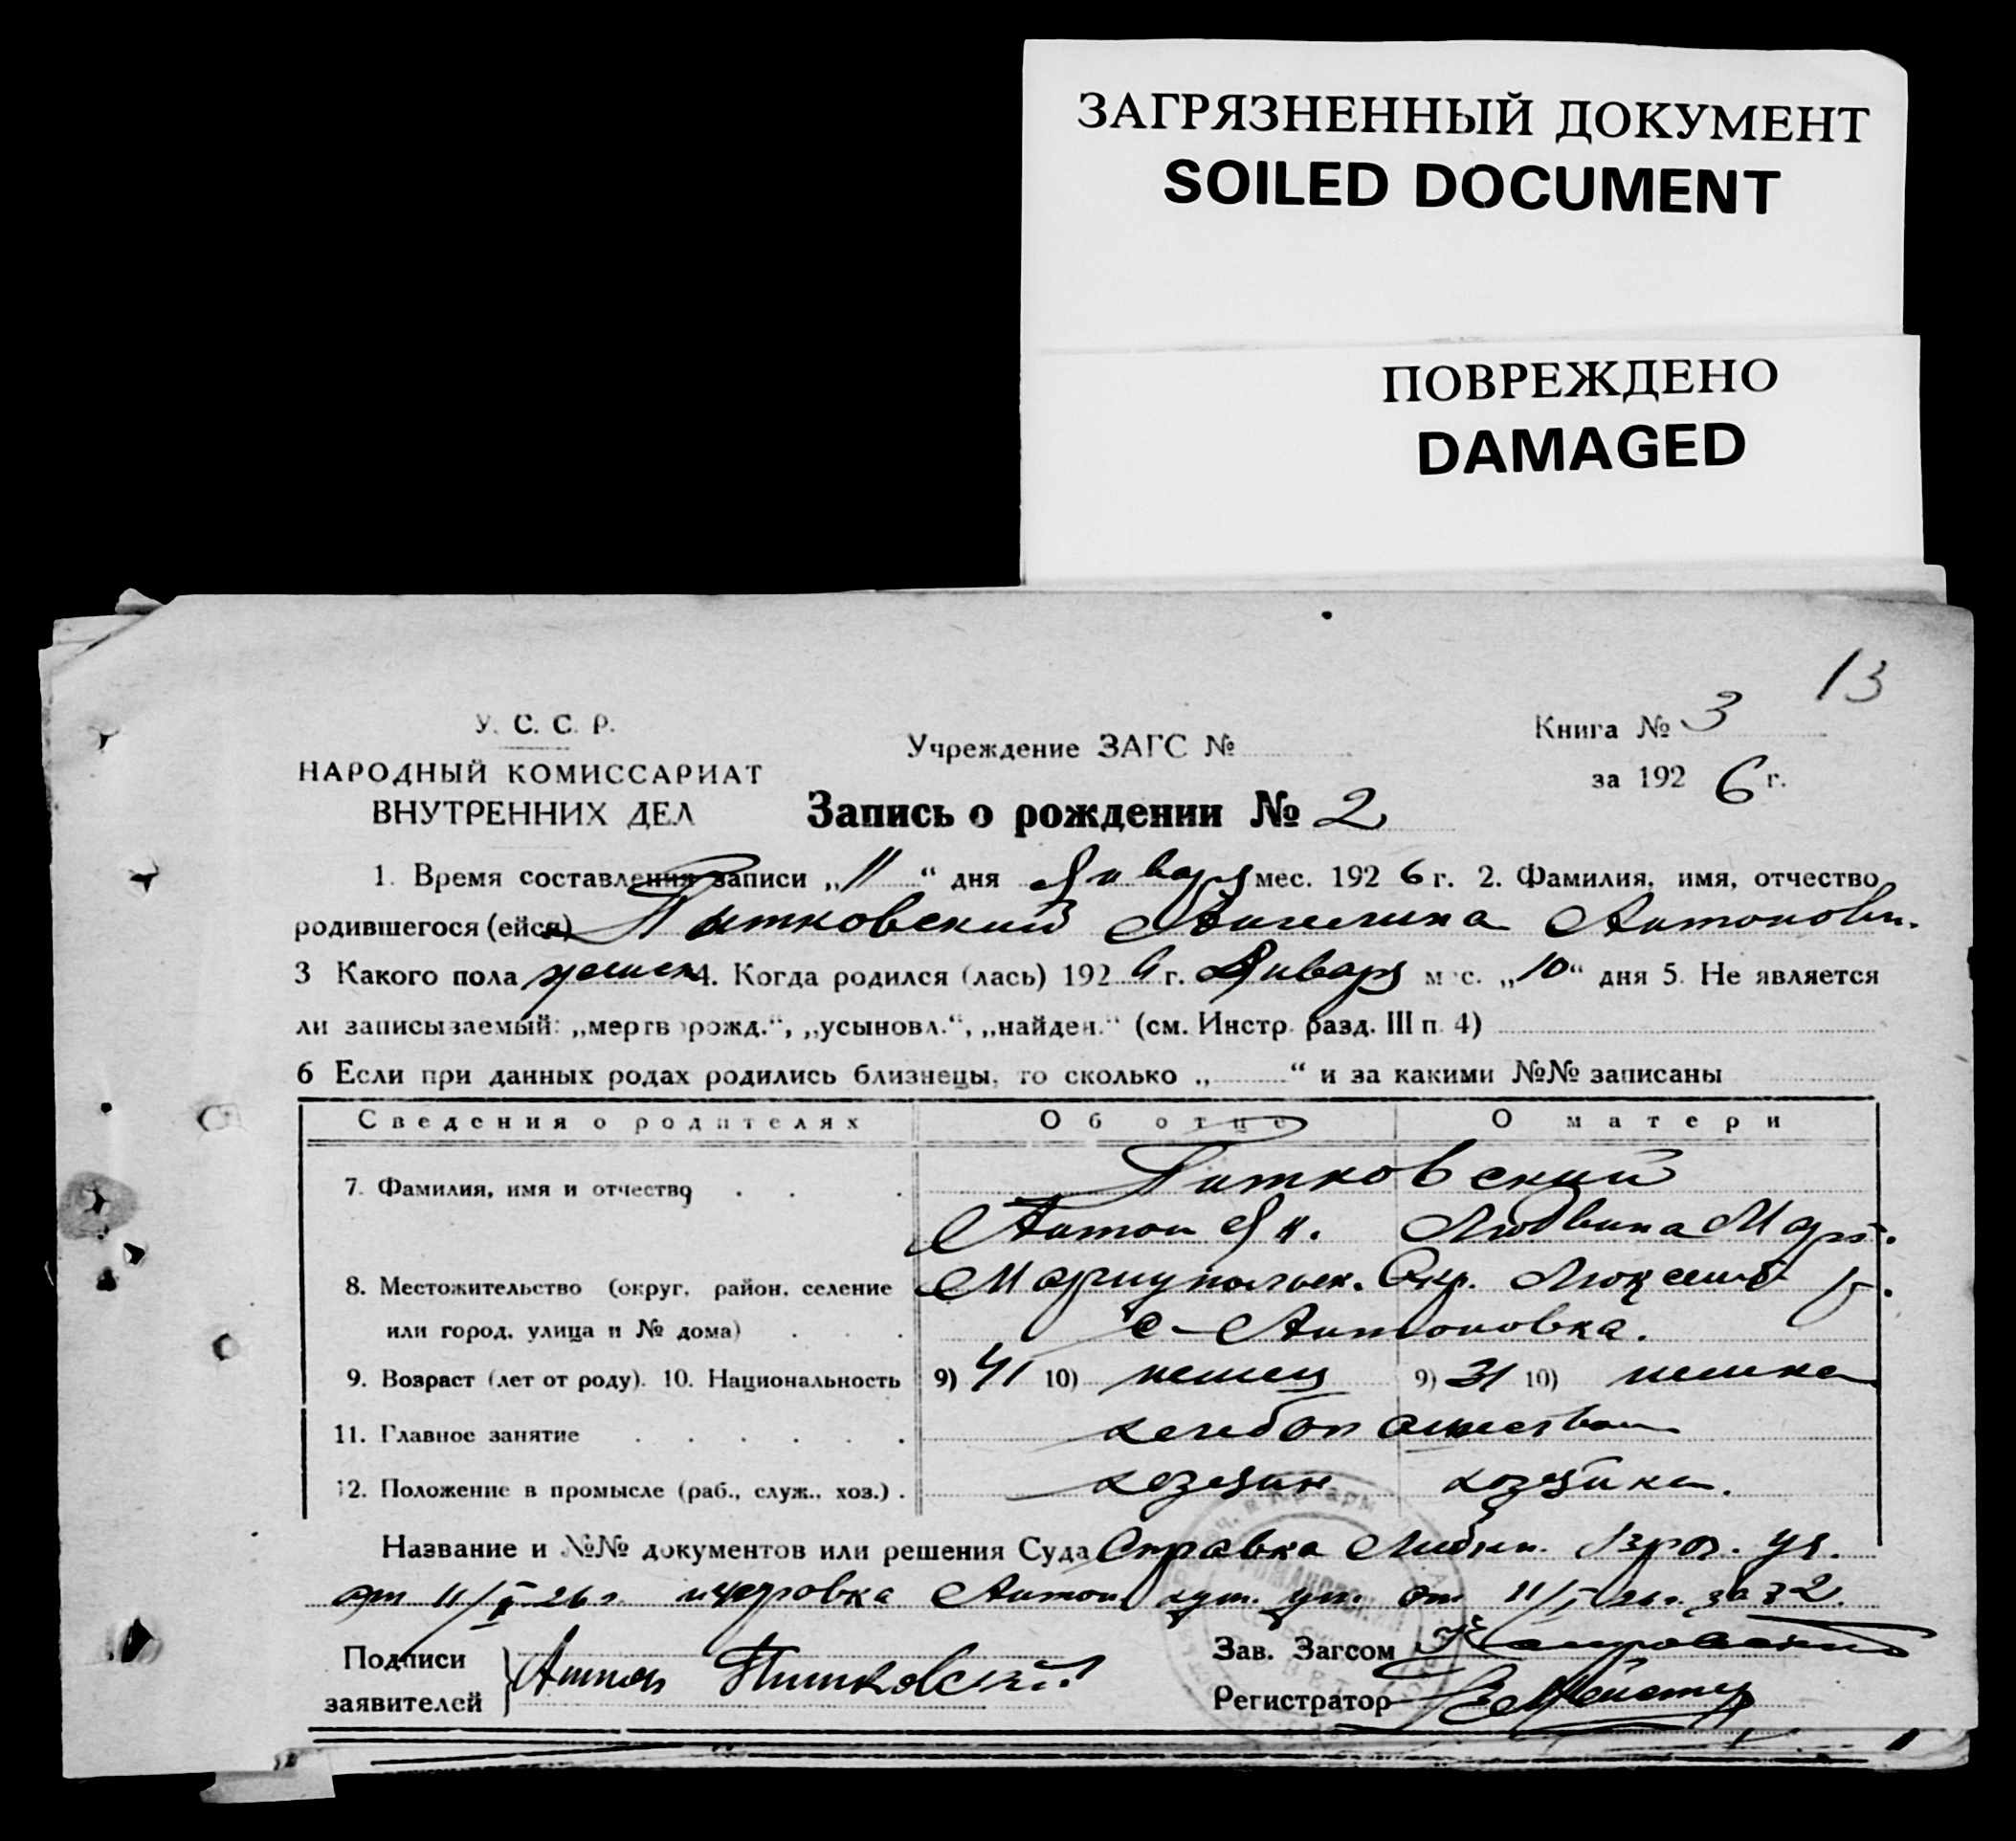 ЗАГРЯЗНЕННЫЙ ДОКУМЕНТ
SOILED DOCUMENT
ПОВРЕЖДЕНО
DAMAGED
13
У. С. С. Р.
НАРОДНЫЙ КОМИССАРИАТ
ВНУТРЕННИХ ДЕЛ
Учреждение ЗАГС №
Книга № 3
за 192 6 г.
Запись о рождении № 2
1. Время составления записи „11“ дня Января мес. 192 6 г. 2. Фамилия, имя, отчество
родившегося (ейся) Питковский Антонови.
3 Какого пола женск 4. Когда родился (лась) 192 6 г. Января мес. „10“ дня 5. Не является
ли записываемый: „мертворожд.“, „усыновл.“, „найден.“ (см. Инстр. разд. III п. 4)
6 Если при данных родах родились близнецы, то сколько „ “ и за какими №№ записаны
Сведения о родителях Об отце О матери
7. Фамилия, имя и отчество Питковский
Антон Як. Людвина Март.
8. Местожительство (округ, район, селение Мариупольск. Окр. Люксемб р.
или город, улица и № дома) с- Антоновка.
9. Возраст (лет от роду). 10. Национальность 9) 41 10) немец 9) 31 10) немка
11. Главное занятие хлебопашество
12. Положение в промысле (раб., служ., хоз.) хозяин хозяйка.
Название и №№ документов или решения Суда Справка
от 11/I-26 г. Антон от 11/I 26 г. за № 2.
Подписи
заявителей
Антон Питковский
Зав. Загсом
Регистратор